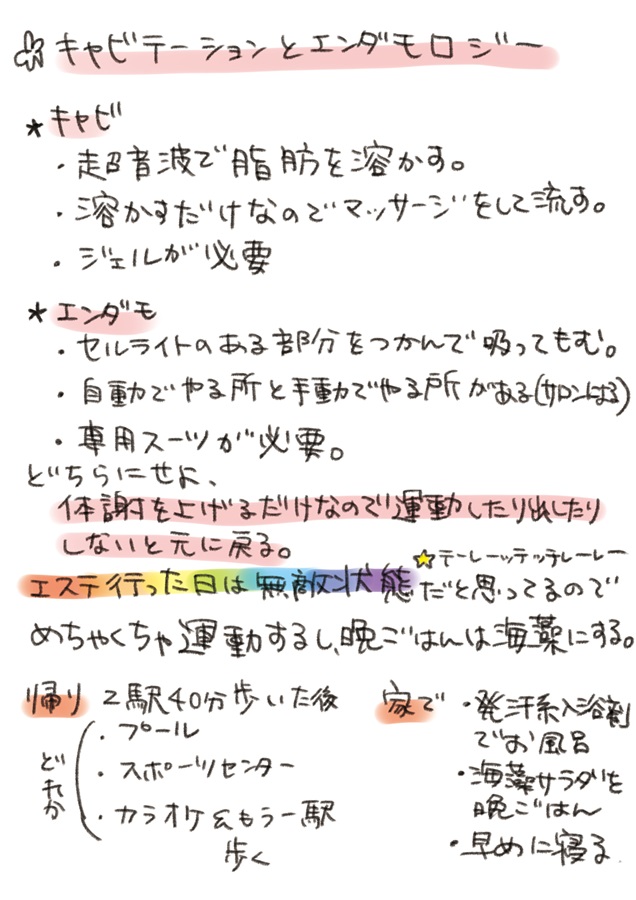 キャビテーションとエンダモロジー
★キャビ
・超音波で脂肪を溶かす。
・溶かすだけなのでマッサージをして流す。
・ジェルが必要
★エンダモ
・セルライトのある部分をつかんで吸ってもむ。
・自動でやる所と手動でやる所がある(サロンによる)
・専用スーツが必要。
どちらにせよ、
体謝を上げるだけなので運動したり出したり
しないと元に戻る。
★テーレーッテッテレーレー
エステ行った日は無敵状態だと思ってるので
めちゃくちゃ運動するし、晩ごはんは海藻にする。
帰り 2駅40分歩いた後
どれか
・プール
・スポーツセンター
・カラオケ&もう一駅
歩く
家で ・発汗系入浴剤
でお風呂
・海藻サラダを
晩ごはん
・早めに寝る